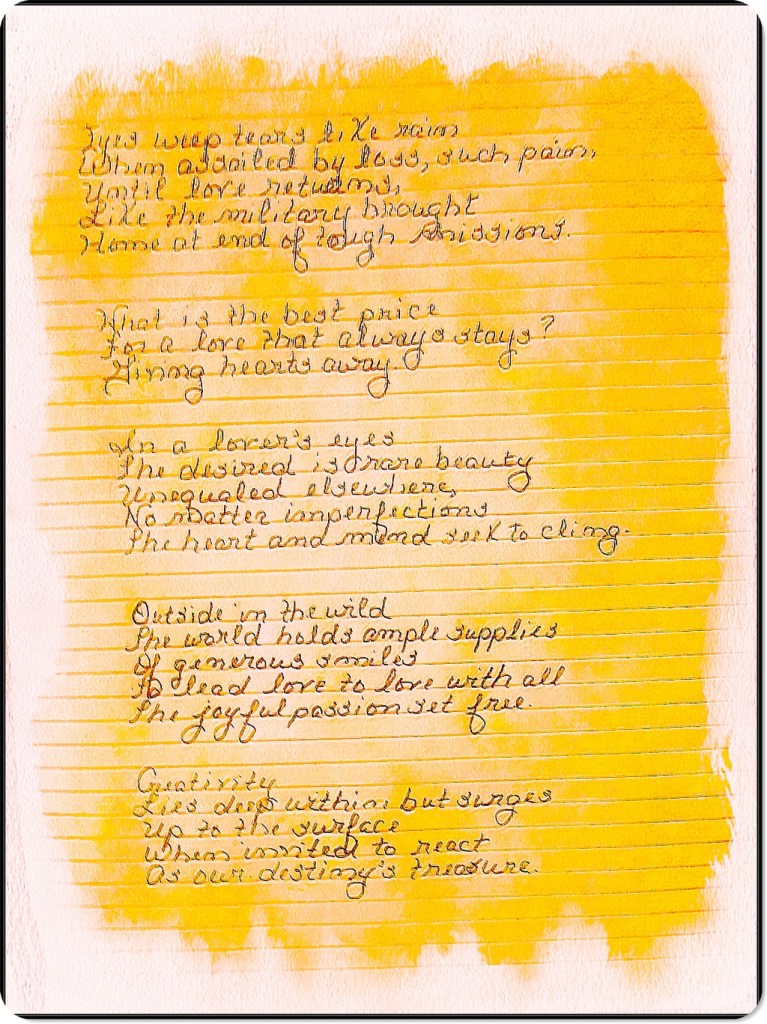 Eyes weep tears like rain
When assailed by loss, such pain,
Until love returns,
Like the military brought
Home at end of tough missions.
What is the best price
For a love that always stays?
Giving hearts away.
In a lover's eyes
The desired is rare beauty
Unequaled elsewhere,
No matter imperfections
The heart and mind seek to cling.
Outside in the wild
The world holds ample supplies
Of generous smiles
To lead love to love with all
The joyful passion set free.
Creativity
Lies deep within, but surges
Up to the surface
When invited to react
As our destiny's treasure.